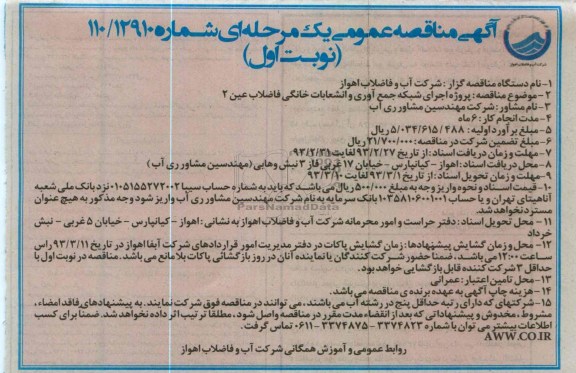 آگهی مناقصه عمومی یک مرحله‌ای شماره ۱۱۰/۱۲۹۱۰
(نوبت اول)
۱- نام دستگاه مناقصه گزار : شرکت آب و فاضلاب اهواز
۲- موضوع مناقصه : پروژه اجرای شبکه جمع آوری و انشعابات خانگی فاضلاب عین ۲
۳- نام مشاور: شرکت مهندسین مشاور ری آب
۴- مدت انجام کار : ۶ ماه
۵- مبلغ برآورد اولیه : ۵/۰۳۴/۶۱۵/۴۸۸ ریال
۶- مبلغ تضمین شرکت در مناقصه: ۲۱/۷۰۰/۰۰۰ ریال
۷- مهلت و زمان دریافت اسناد : از تاریخ ۹۳/۲/۲۷ لغایت ۹۳/۲/۳۱
۸- محل دریافت اسناد : اهواز - کیانپارس - خیابان ۱۷ غربی فاز ۳ نبش وهابی (مهندسین مشاور ری آب)
۹- مهلت و زمان تحویل اسناد: از تاریخ ۹۳/۳/۱ لغایت ۹۳/۳/۱۰
۱۰- قیمت اسناد و نحوه واریز وجه به مبلغ ۵۰۰/۰۰۰ ریال می باشد که باید به شماره حساب سیبا ۰۱۰۵۱۵۵۲۷۲۰۰۲ نزد بانک ملی شعبه
آناهیتای تهران و یا حساب ۱۰۳۵۸۱۰۶۰۰۱۰۰۱ بانک سرمایه به نام شرکت مهندسین مشاور ری آب واریز شود وجه مذکور به هیچ عنوان
مسترد نخواهد شد.
۱۱- محل تحویل اسناد: دفتر حراست و امور محرمانه شرکت آب و فاضلاب اهواز به نشانی : اهواز - کیانپارس - خیابان ۵ غربی - نبش
خرداد
۱۲- محل و زمان گشایش پیشنهادها: زمان گشایش پاکات در دفتر مدیریت امور قراردادهای شرکت آبفا اهواز در تاریخ ۹۳/۳/۱۱ راس
ساعت ۱۲:۰۰ می باشد. ضمنا حضور شرکت کنندگان یا نماینده آنان در روز بازگشائی پاکات بلامانع می باشد. مناقصه در نوبت اول با
حداقل ۳ شرکت کننده قابل بازگشایی خواهد بود.
۱۳- محل تامین اعتبار : عمرانی
۱۴- هزینه چاپ آگهی به عهده برنده ی مناقصه می باشد.
۱۵- شرکتهای که دارای رتبه حداقل پنج در رشته آب می باشند ، می توانند در مناقصه فوق شرکت نمایند. به پیشنهادهای فاقد امضاء ،
مشروط ، مخدوش و پیشنهاداتی که بعد از انقضاء مدت مقرر در مناقصه واصل شود ، مطلقا ترتیب اثر داده نخواهد شد. ضمنا برای کسب
اطلاعات بیشتر می توان با شماره ۳۳۷۴۸۲۳ - ۳۳۷۴۸۷۵-۰۶۱۱ تماس گرفت.
AWW.CO.IR
روابط عمومی و آموزش همگانی شرکت آب و فاضلاب اهواز